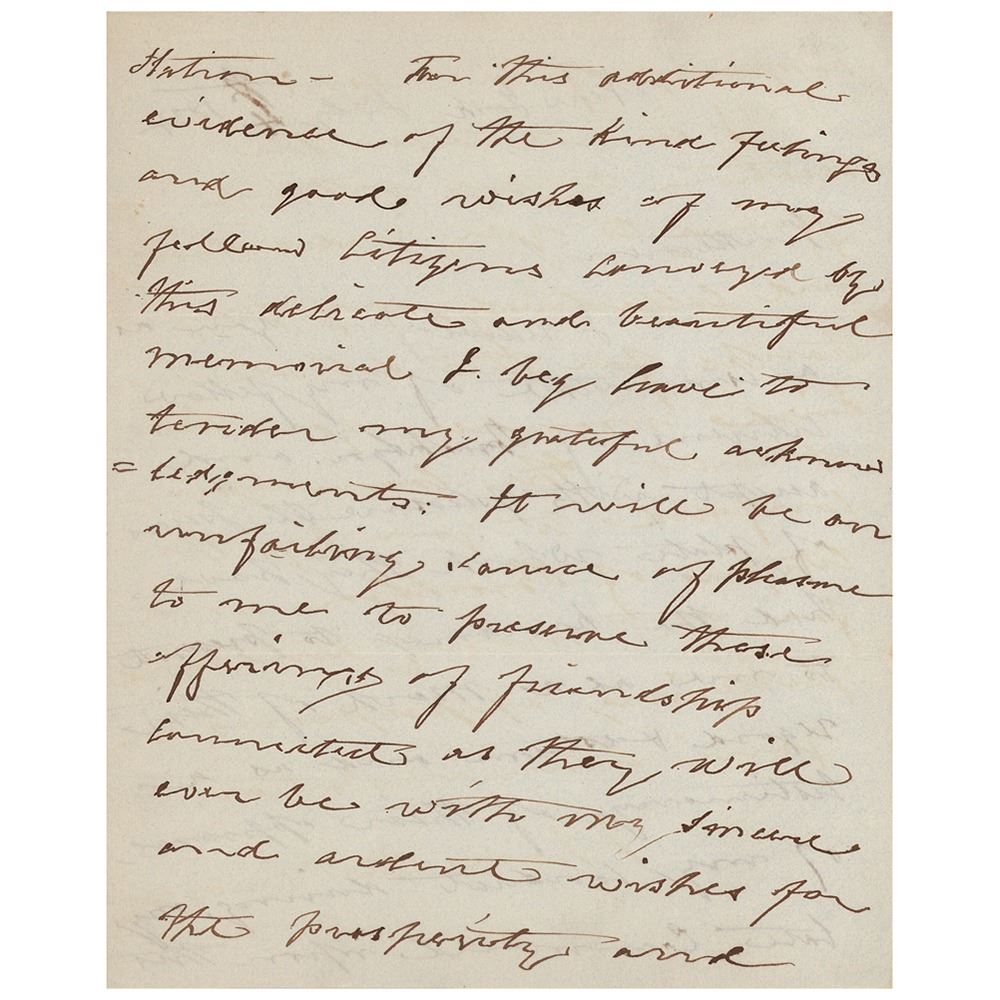 Station – For this additional
evidence of the kind feelings
and good wishes of my
fellow Citizens conveyed by
this delicate and beautiful
memorial I beg leave to
tender my grateful acknow
=ledgments. It will be an
unfailing source of pleasure
to me to preserve these
offerings of friendship
connected as they will
ever be with my sincere
and ardent wishes for
the prosperity and